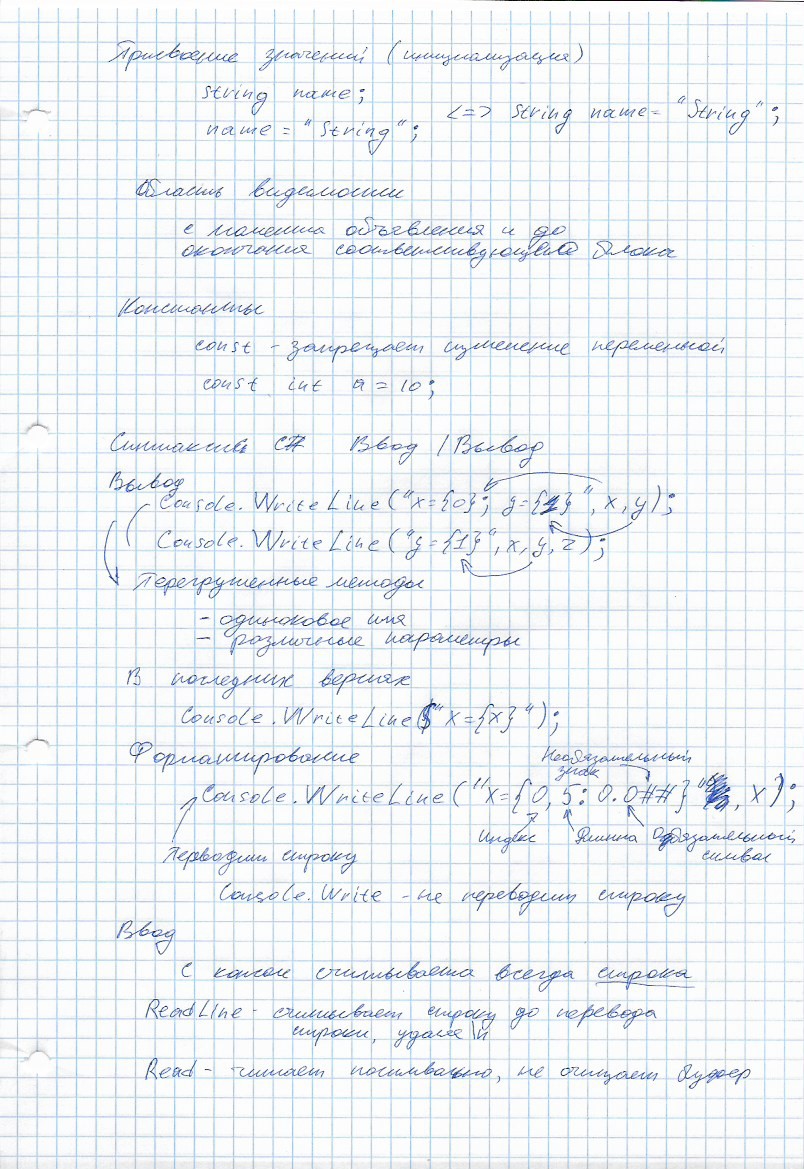 Присвоение значений (инициализация)
string name;
name = "String"; <=> String name = "String";
Область видимости
с момента объявления и до
окончания соответствующего блока
Константы
const - запрещает изменение переменной
const int a = 10;
Синтаксис C# Ввод / Вывод
Вывод
Console.WriteLine("x={0}; y={1}", x, y);
Console.WriteLine("y={1}", x, y, z);
Перегруженные методы
- одинаковое имя
- различные параметры
В последних версиях
Console.WriteLine($"x={x}");
Форматирование
Необязательный
знак
Console.WriteLine("x={0,5:0.0##}", x);
Индекс Длинна Обязательный
символ
Переводит строку
Console.Write - не переводит строку
Ввод
С консоли считывается всегда строка
ReadLine - считывает строку до перевода
строки, удаляя \n
Read - читает посимвольно, не очищает буфер